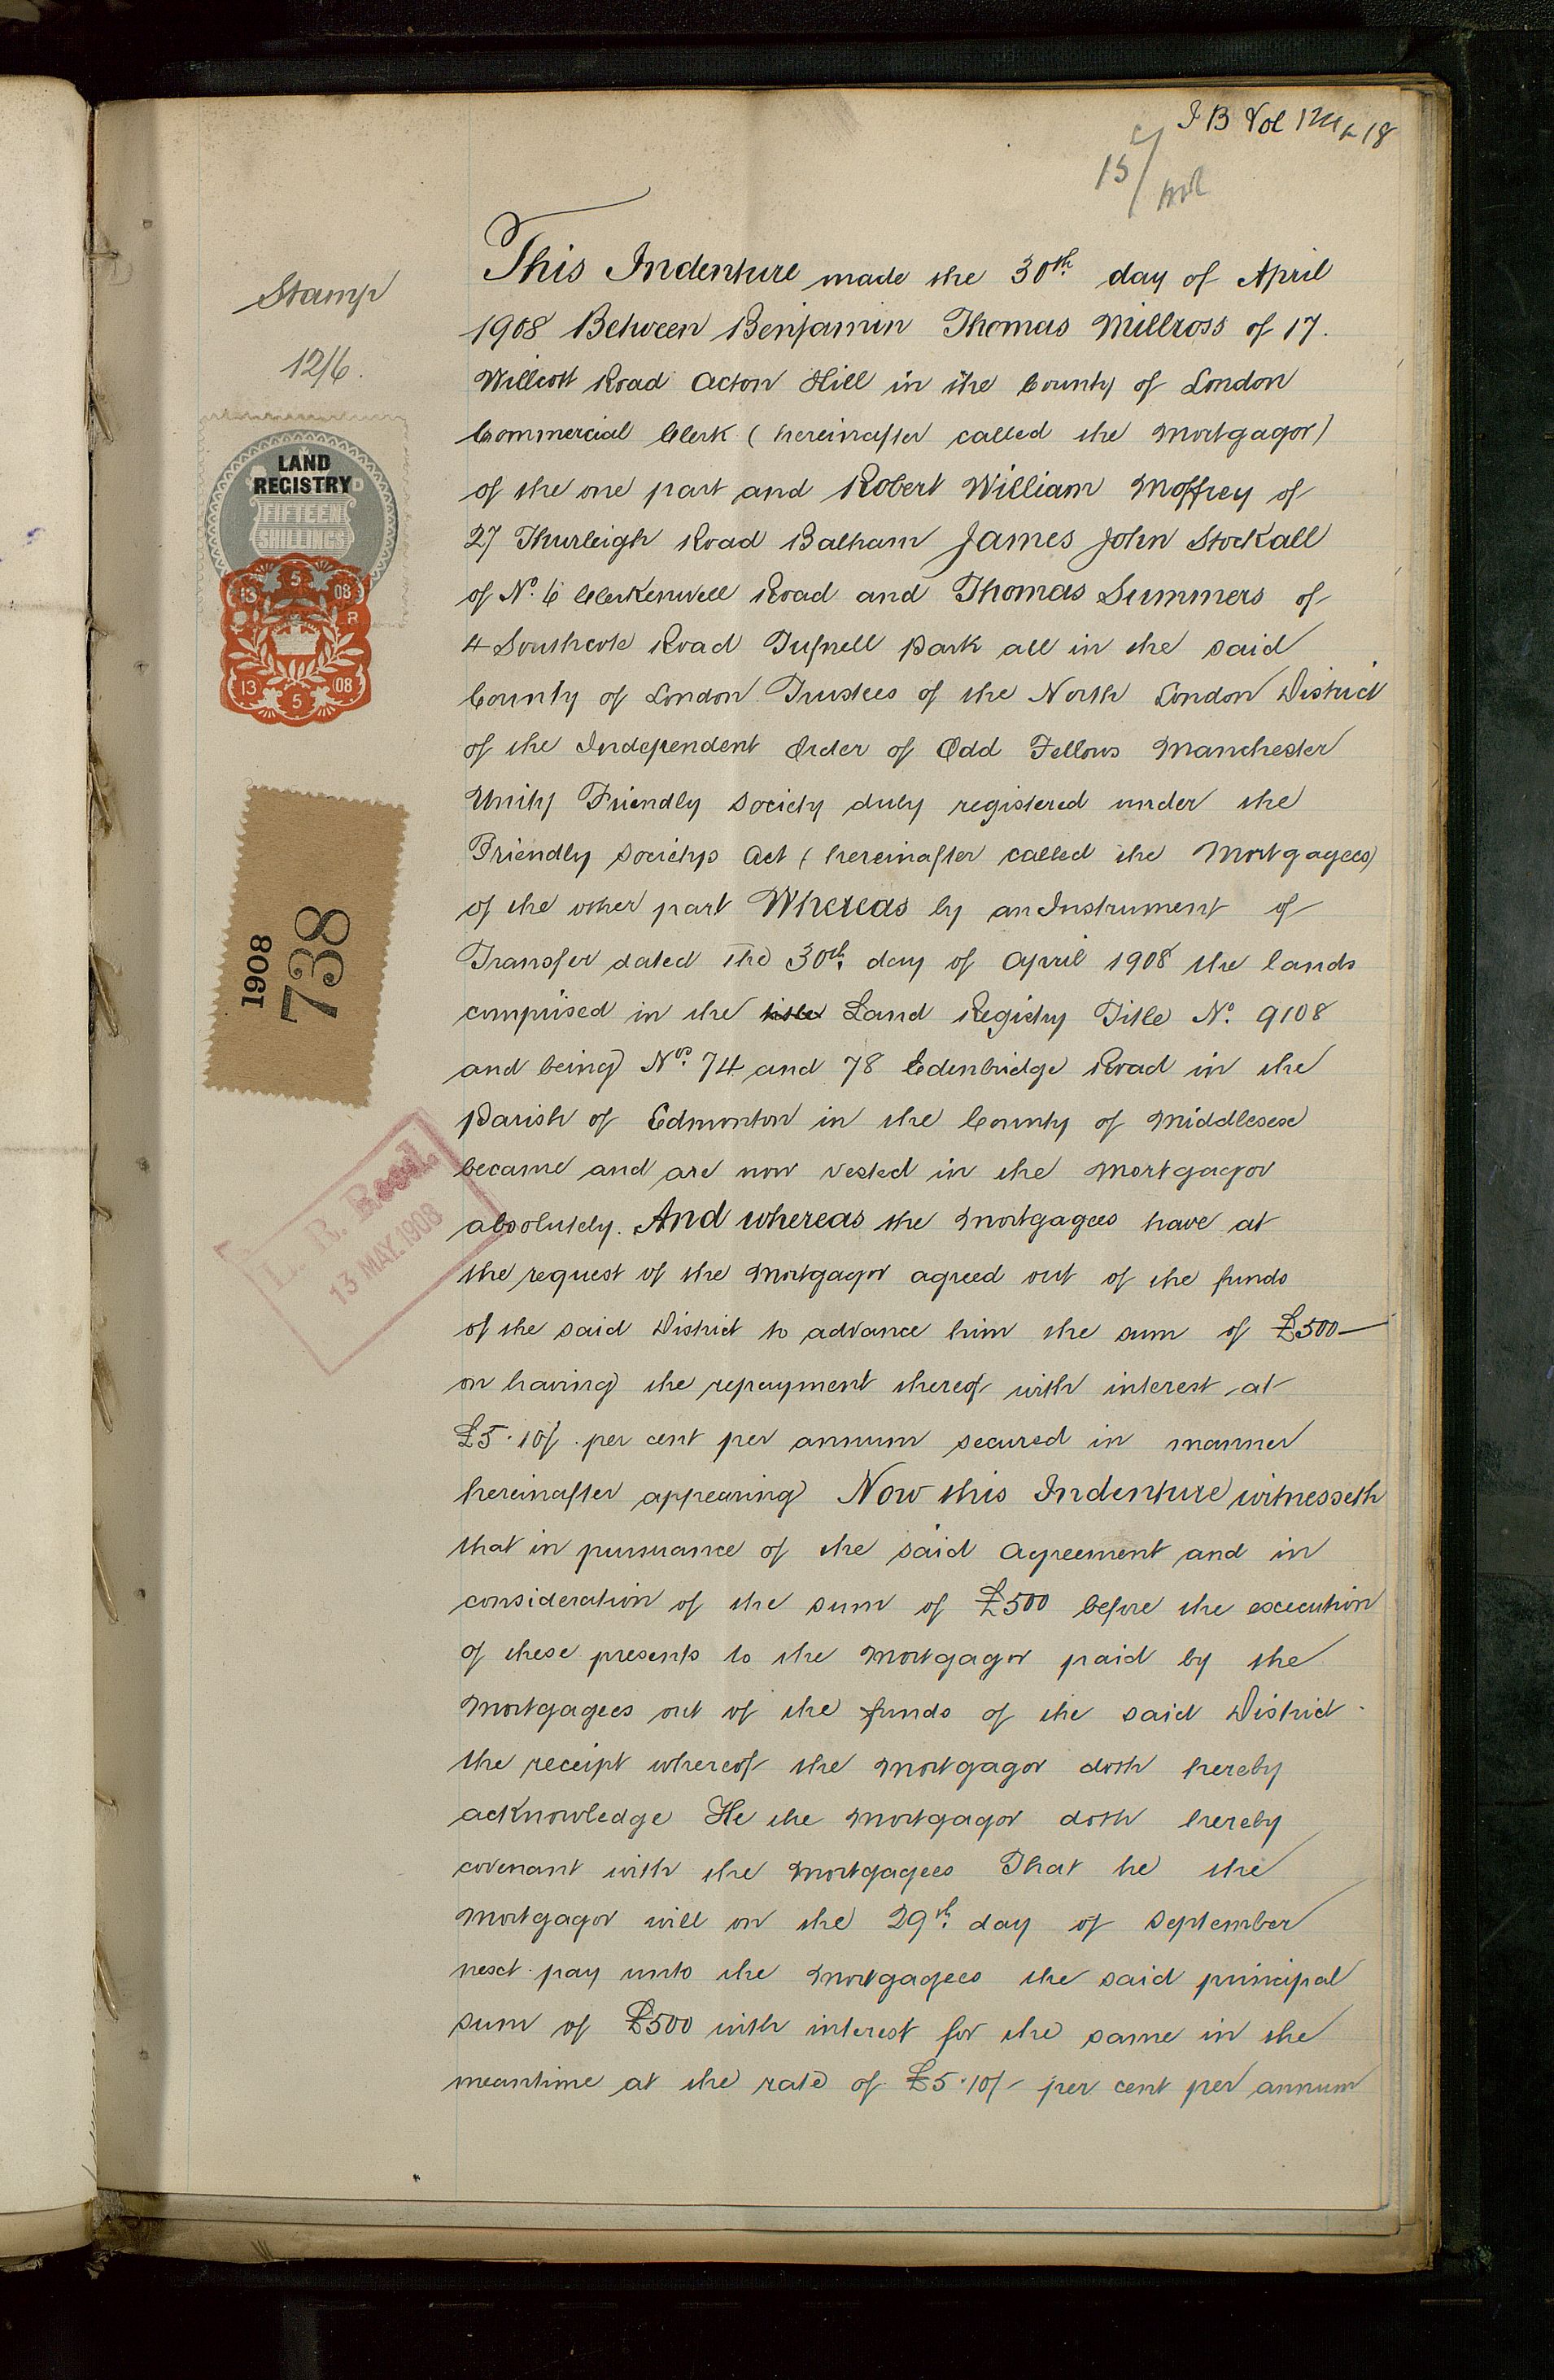 I B Vol 
15/
Stamp
12/6.
LAND
REGISTRY
FIFTEEN
SHILLINGS
5
13 08
R
13 08
5
1908
738
L. R. Recd.
13 MAY. 1908
This Indenture made the 30th. day of April
1908 Between Benjamin Thomas Millross of 17.
Willcott Road Acton Hill in the County of London
Commercial Clerk (hereinafter called the Mortgagor)
of the one part and Robert William Moffrey of
27 Thurleigh Road Balham James John Stockall
of No. 6 Clerkenwell Road and Thomas Summers of
4 Southcote Road Tufnell Park all in the said
County of London Trustees of the North London District
of the Independent Order of Odd Fellows Manchester
Unity Friendly Society duly registered under the
Friendly Societys Act (hereinafter called the Mortgagees)
of the other part Whereas by an Instrument of
Transfer dated the 30th. day of April 1908 the lands
comprised in the title Land Registry Title No. 9108
and being Nos. 74 and 78 Edenbridge Road in the
Parish of Edmonton in the County of Middlesex
became and are now vested in the Mortgagor
absolutely. And whereas the Mortgagees have at
the request of the Mortgagor agreed out of the funds
of the said District to advance him the sum of £500—
on having the repayment thereof with interest at
£5.10/. per cent per annum secured in manner
hereinafter appearing Now this Indenture witnesseth
that in pursuance of the said Agreement and in
consideration of the sum of £500 before the execution
of these presents to the Mortgagor paid by the
Mortgagees out of the funds of the said District.
the receipt whereof the Mortgagor doth hereby
acknowledge He the Mortgagor doth hereby
covenant with the Mortgagees That he the
Mortgagor will on the 29th. day of September
next pay unto the Mortgagees the said principal
sum of £500 with interest for the same in the
meantime at the rate of £5.10/- per cent per annum